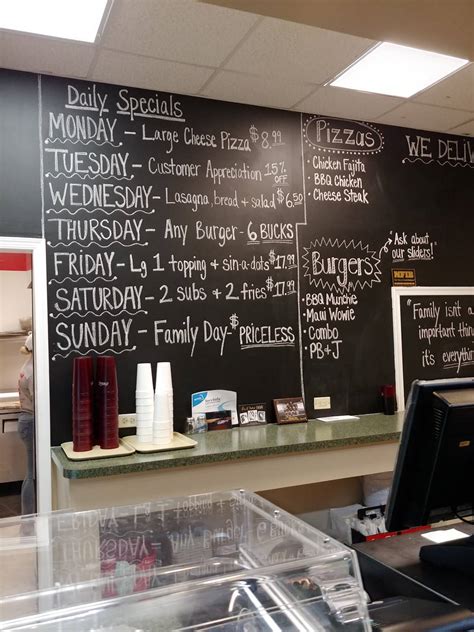 Daily Specials
MONDAY - Large Cheese Pizza $8.99
TUESDAY - Customer Appreciation 15% OFF
WEDNESDAY - Lasagna, bread + salad $6.50
THURSDAY - Any Burger - 6 BUCKS
FRIDAY - Lg 1 topping + sin-a-dots $17.99
SATURDAY - 2 subs + 2 fries $17.99
SUNDAY - Family Day - $PRICELESS
Pizzas
Chicken Fajita
BBQ Chicken
Cheese Steak
Burgers
BBQ Munchie
Maui Wowie
Combo
PB+J
WE DELIV
Ask about
our sliders!
NFIB
"Family isn't a
important thing
it's everything